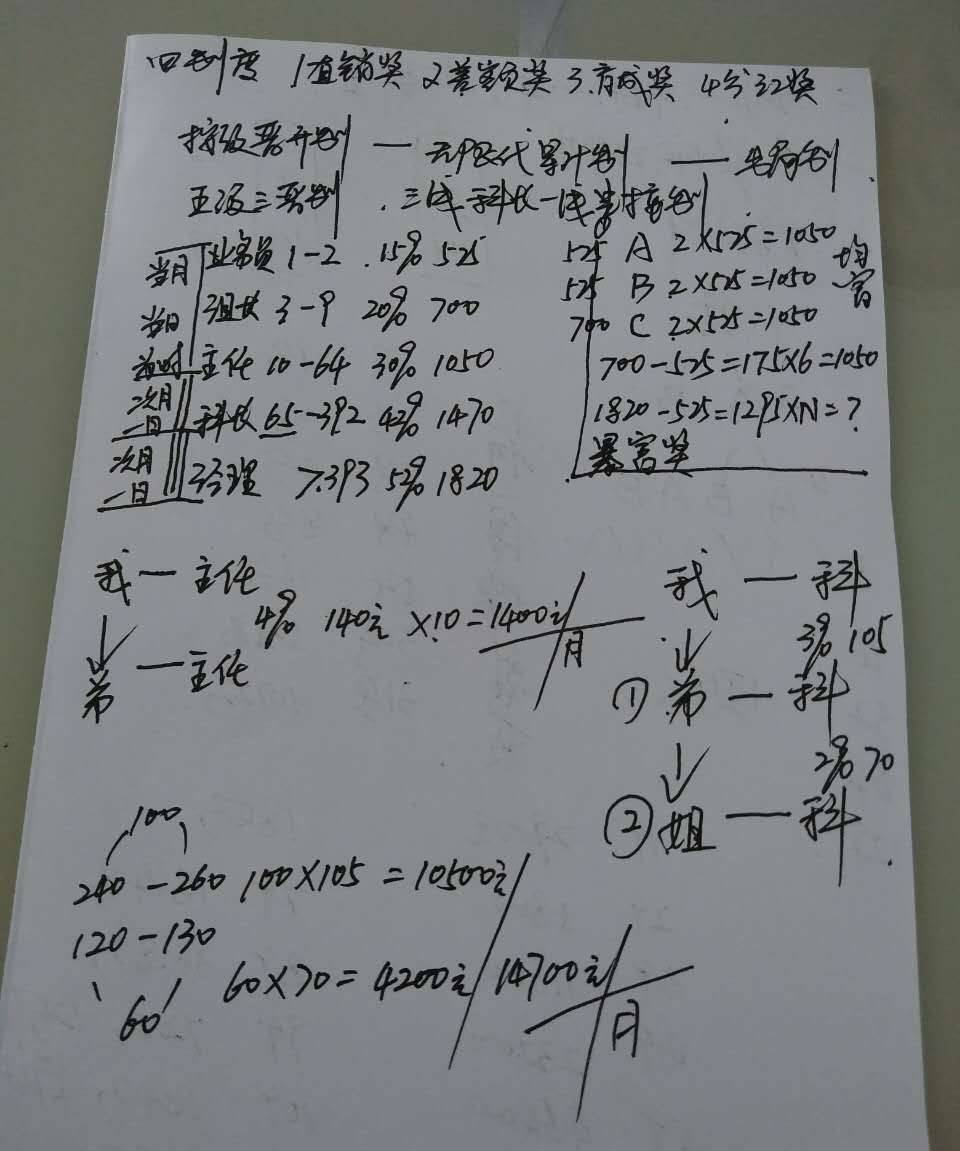 四制度 1直销奖 2差额奖 3.育成奖 4分红奖
按级晋升制 — 无限代累计制 — 出局制
五级三晋制 三线科长一线紧接制
当月 业务员 1-2 15% 525
当日 组长 3-9 20% 700
当时 主任 10-64 30% 1050
次月一日 科长 65-392 42% 1470
次月一日 经理 >393 52% 1820
525 A 2×525=1050 均富
525 B 2×525=1050
700 C 2×525=1050
700-525=175×6=1050
1820-525=1295×N=?
暴富奖
我 — 主任
4% 140元 ×10=1400元/月
↓
弟 — 主任
我 — 科
↓ 3% 105
① 弟 — 科
↓ 2% 70
② 姐 — 科
100
240-260 100×105=10500元
120-130
60×70=4200元 14700元/月
60